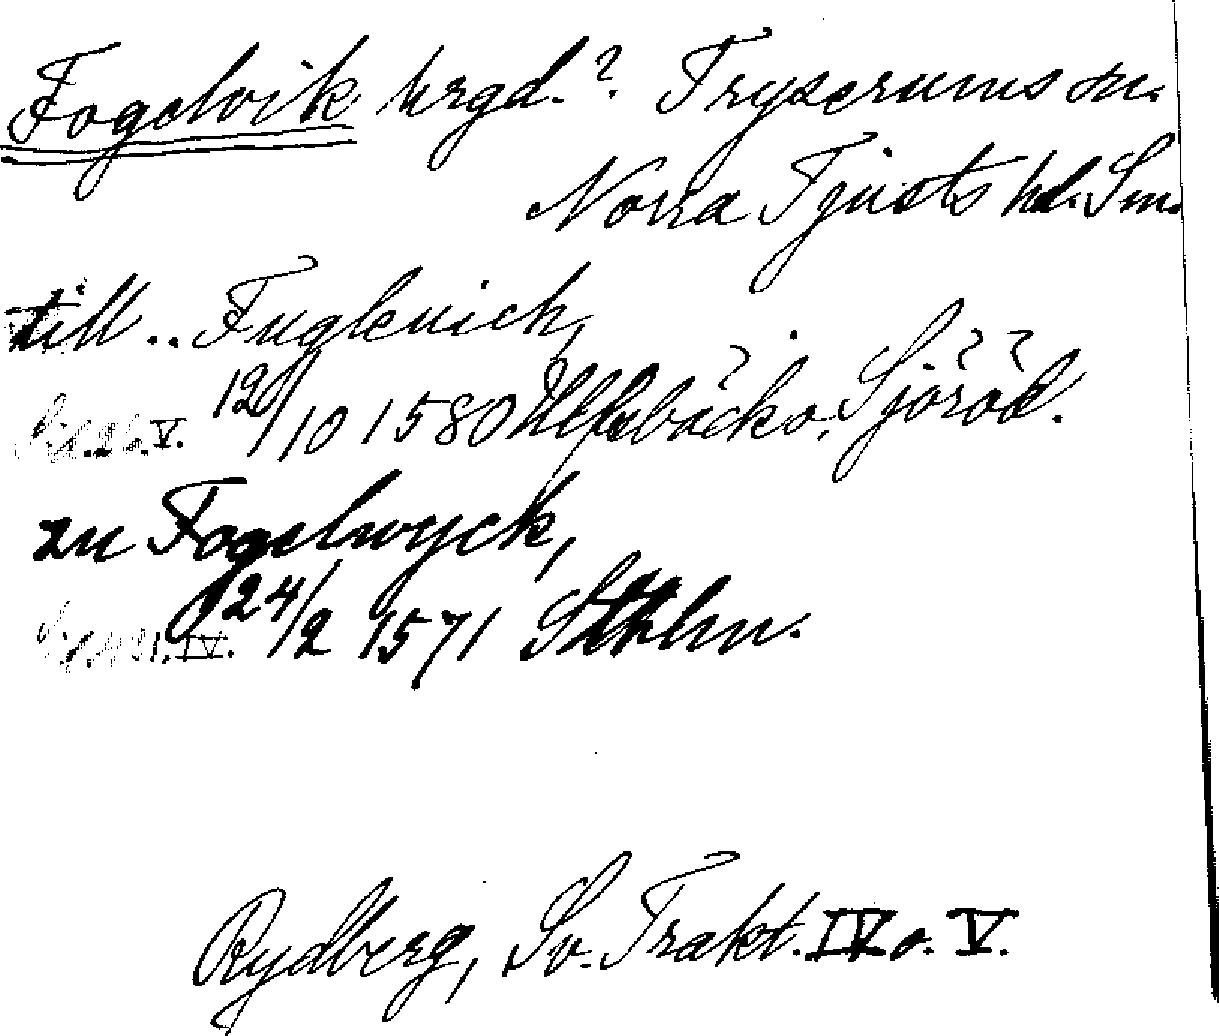 Fogelvik hrgd.? Tryserums sn.
Norra Tjusts hd. Sm.
till .. Fuglenich,
12/10 1580 Ulfsbäcko. Sjöröd.
V.
zu Fogelwyck,
24/2 1571 Stkhlm.
IV.
Rydberg, Sv. Trakt. IV o. V.